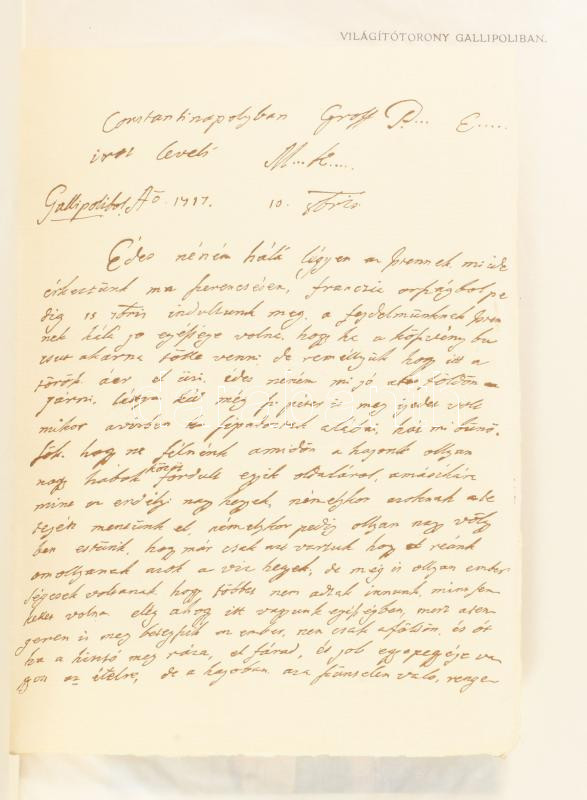 VILÁGÍTÓTORONY GALLIPOLIBAN.
Constantinapolyban Groff P... E.....
irot leveli M... K....
Gallipolibol Aõ. 1717. 10. 8bris
Édes néném hálá légyen az Istennek, mi ide
érkeztünk ma szerencsésen, francziá országbol pe
dig 15 7bris indultunk meg, a fejdelmünknek Iste
nek hálá jo egésége volna, hogy ha a köszvény bu
tsut akarna tölle venni, de reméllyük hogy itt a
török áer el üzi, édes néném mi jó a földön
járni, még
mikor a vizben
fök. hogy ne félnénk amidön a hajonk ollyan
nagy hábok közöt fordult egyik oldaláról, amásikára
mint az erdélyi nagy hegyek, némelykor azoknak a te
tején mentünk el, némelykor pedig ollyan nagy völgy
ben estünk, hogy már csak azt vartuk hogy reánk
omollyanak azok a viz hegyek, de meg is ollyan ember
ségesek voltanak, hogy többet nem adtak innunk, mint sem
kellet volna. elég ahogy itt vagyunk egésségben, mert a ten
geren is meg betegszik az ember, nem csak a földön, és ot
ha a hinto meg rázza, el fárad, és job egyepegyéje va
gyon az ételre, de a hajoban az a szüntelen valo, renge